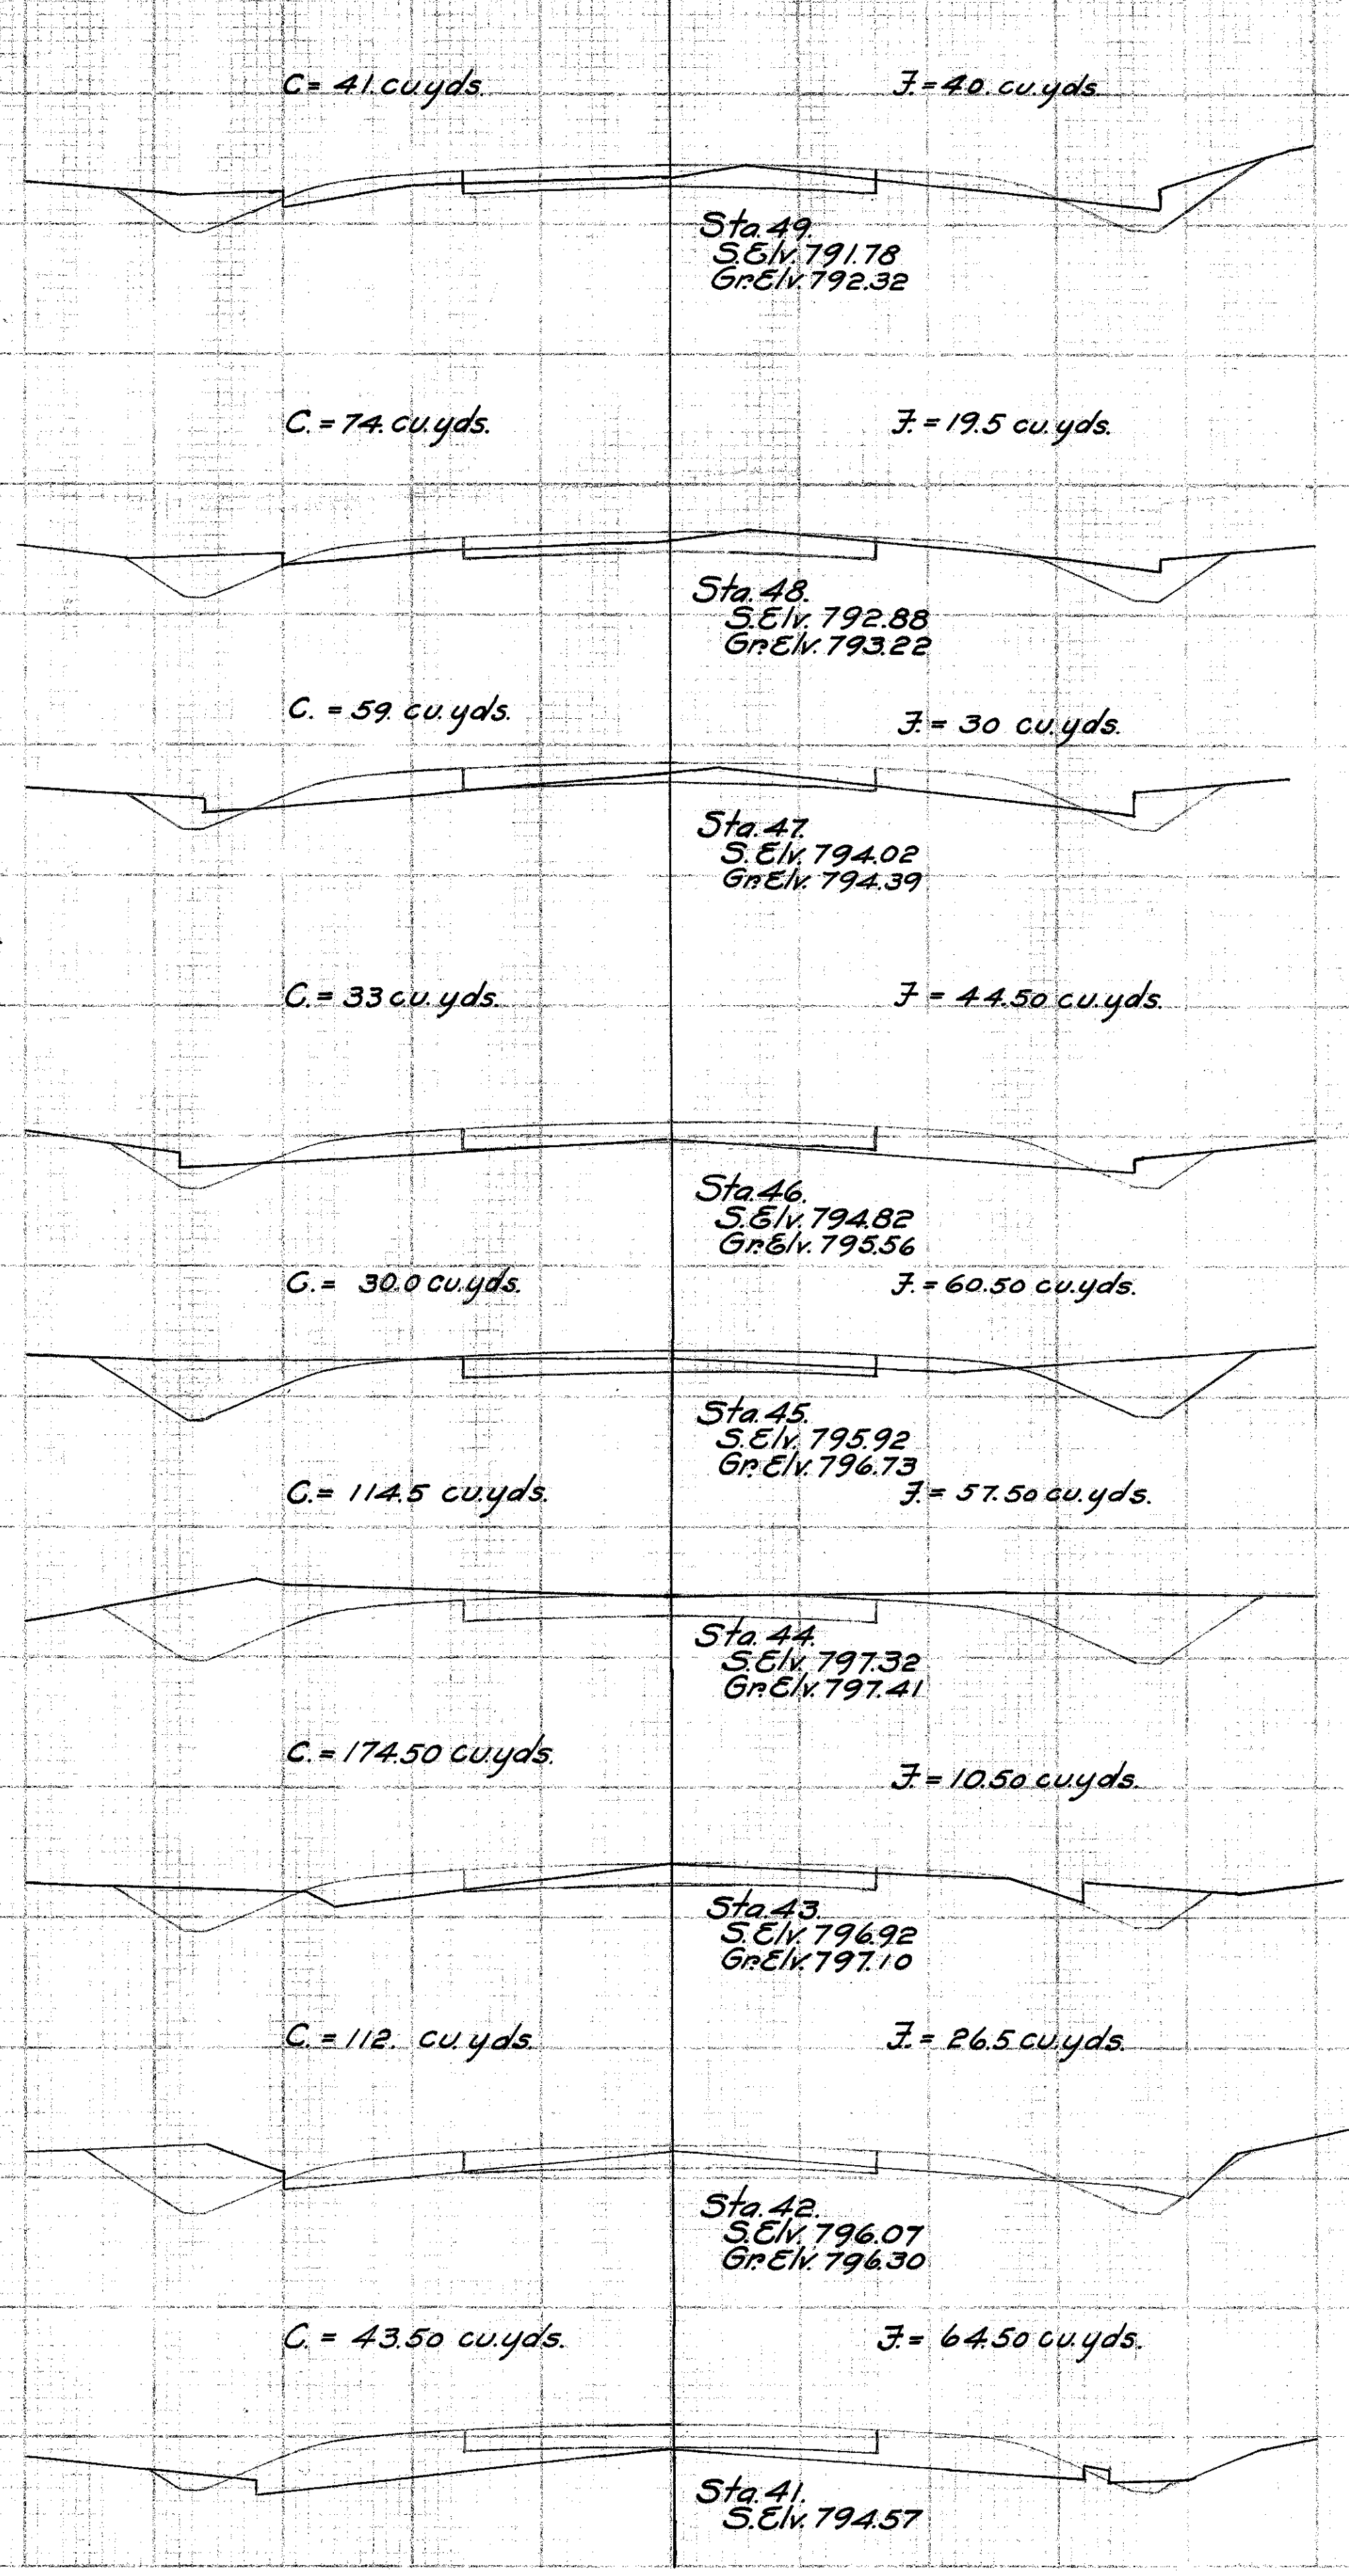 C= 41 cu.yds.
F.=40. cu.yds.
Sta.49.
S.Elv.791.78
Gr.Elv.792.32
C.=74.cu.yds.
F.=19.5 cu.yds.
Sta.48.
S.Elv.792.88
Gr.Elv.793.22
C.=59. cu.yds.
F.= 30 cu.yds.
Sta.47.
S.Elv.794.02
Gr.Elv.794.39
C.=33 cu.yds.
F = 44.50 cu.yds.
Sta.46.
S.Elv.794.82
Gr.Elv.795.56
C.= 30.0 cu.yds.
F.=60.50 cu.yds.
Sta.45.
S.Elv.795.92
Gr.Elv.796.73
C.= 114.5 cu.yds.
F.= 57.50 cu.yds.
Sta.44.
S.Elv.797.32
Gr.Elv.797.41
C.=174.50 cu.yds.
F.=10.50 cu.yds.
Sta.43.
S.Elv.796.92
Gr.Elv.797.10
C.=112. cu.yds.
F.= 26.5 cu.yds.
Sta.42.
S.Elv.796.07
Gr.Elv.796.30
C.= 43.50 cu.yds.
F.= 64.50 cu.yds.
Sta.41.
S.Elv.794.57